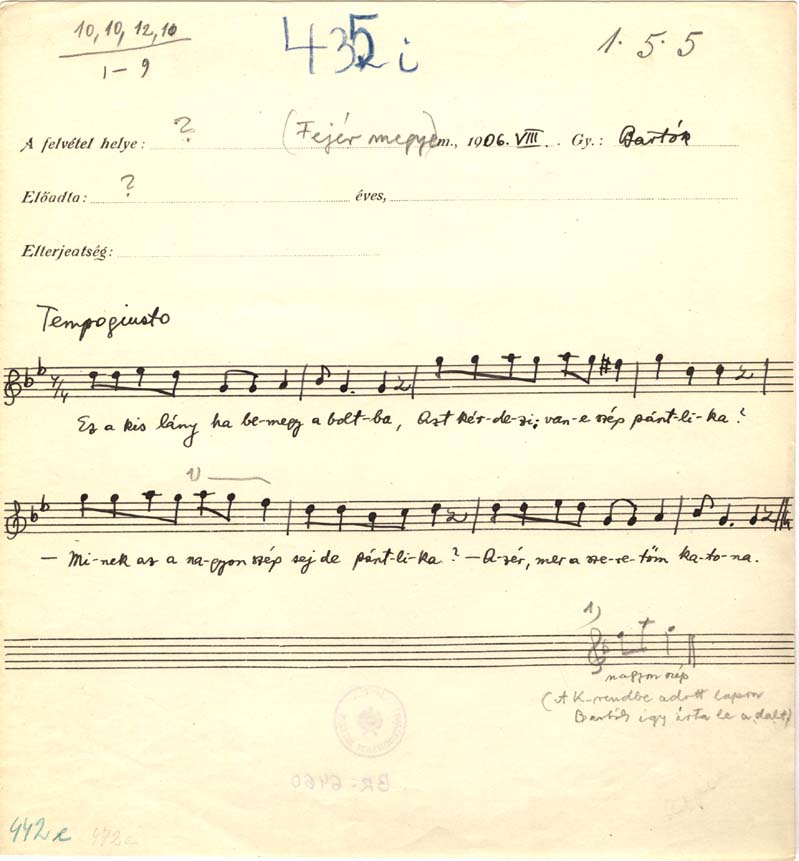 10, 10, 12, 10
1 – 9
435 i
1. 5. 5
A felvétel helye: ? (Fejér megye) m., 1906. VIII. Gy.: Bartók
Előadta: ? éves,
Elterjedtség:
Tempo giusto
Ez a kis lány ha be-megy a bolt-ba, Azt kér-de-zi; van-e szép pánt-li-ka?
1)
— Mi-nek az a na-gyon szép sej de pánt-li-ka? — A-zér, mer a sze-re-tőm ka-to-na.
1)
nagyon szép
(A K-rendbe adott lapon
Bartók így írta le a dalt)
BR-6460
442 e 472 e